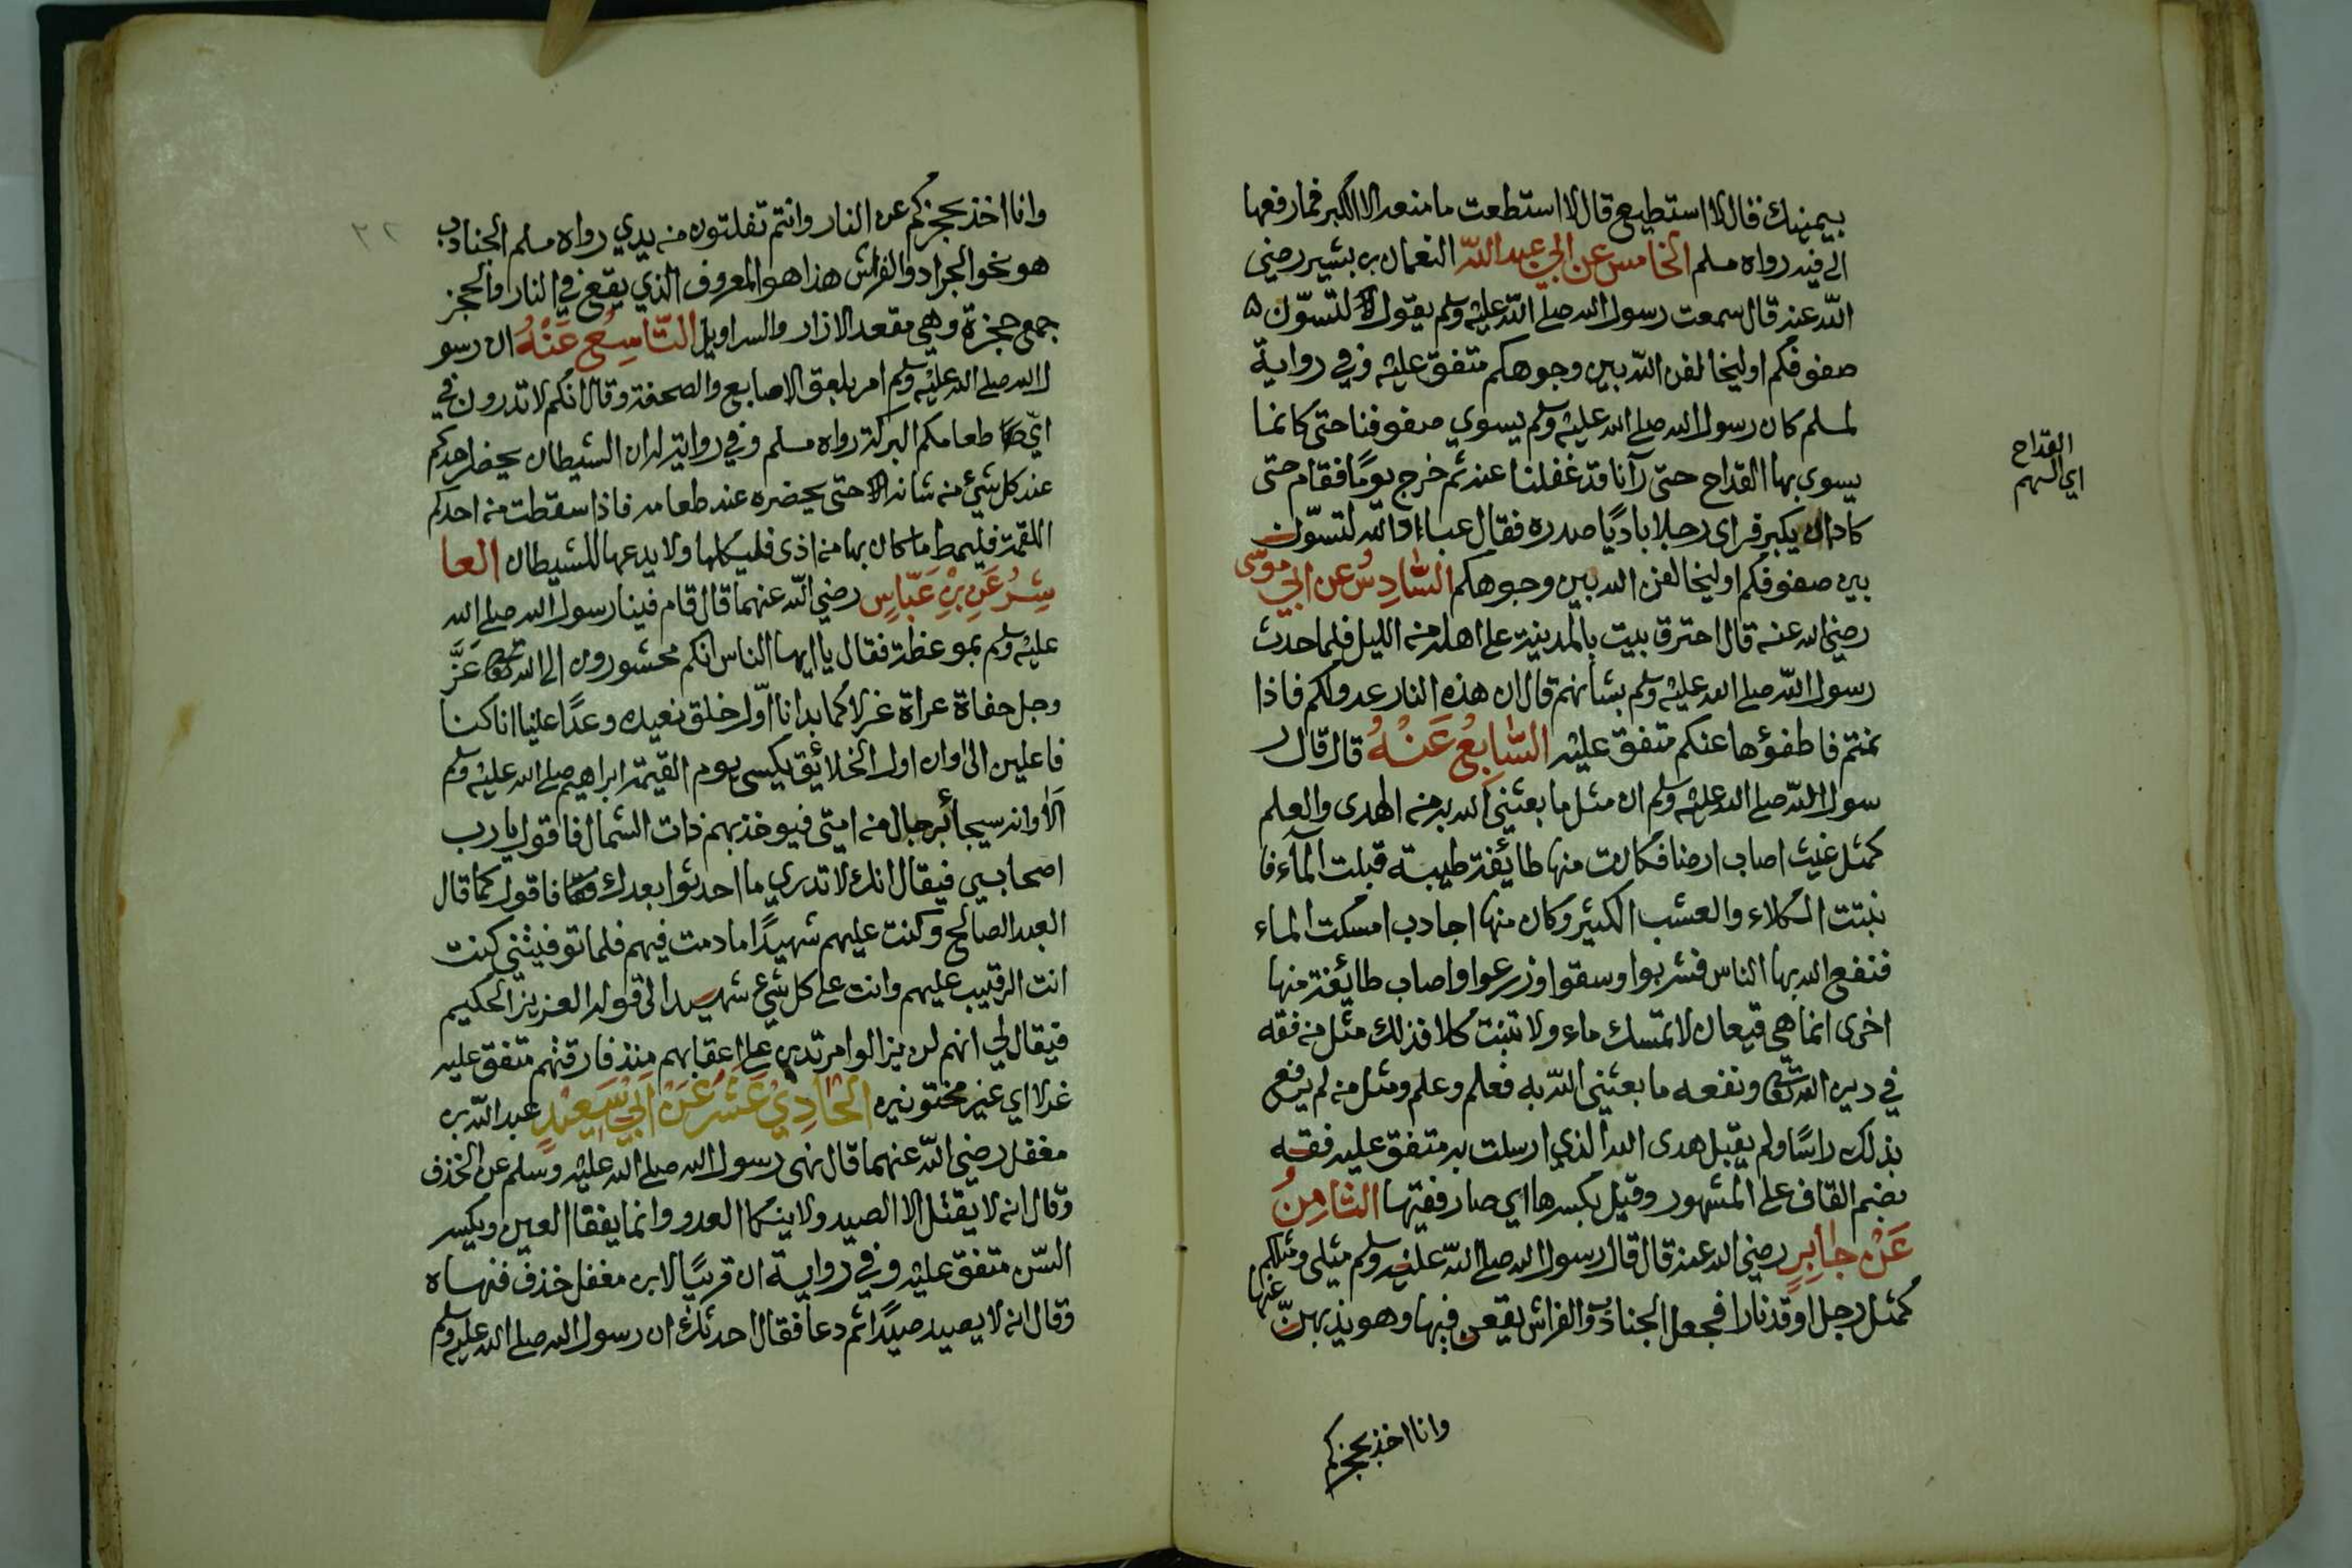 بيمينك فقال لا استطيع قال لا استطعت ما منعه الا الكبر فما رفعها
الى فيه رواه مسلم الخامس عن ابي عبد الله النعمان بن بشير رضي
الله عنه قال سمعت رسول الله صلى الله عليه وسلم يقول لتسوّن
صفوفكم او ليخالفن الله بين وجوهكم متفق عليه وفي رواية
لمسلم كان رسول الله صلى الله عليه وسلم يسوي صفوفنا حتى كانما
يسوي بها القداح حتى رآنا قد غفلنا عنه ثم خرج يومًا فقام حتى
كاد ان يكبر فراى رجلا باديًا صدره فقال عباد الله لتسوّن
بين صفوفكم او ليخالفن الله بين وجوهكم السَّادِسُ عن ابي موسى
رضي الله عنه قال احترق بيت بالمدينة على اهله من الليل فلما حدث
رسول الله صلى الله عليه وسلم بشأنهم قال ان هذه النار عدو لكم فاذا
نمتم فاطفؤها عنكم متفق عليه السَّابِعُ عَنْهُ قال قال ر
سول الله صلى الله عليه وسلم ان مثل ما بعثني الله به من الهدى والعلم
كمثل غيث اصاب ارضا فكانت منها طايفة طيبة قبلت المآء فا
نبتت الكلاء والعشب الكثير وكان منها اجادب امسكت الماء
فنفع الله بها الناس فشربوا وسقوا وزرعوا واصاب طايفة منها
اخرى انما هي قيعان لا تمسك ماء ولا تنبت كلا فذلك مثل من فقه
في دين الله تعالى ونفعه ما بعثني الله به فعلم وعلم ومثل من لم يرفع
بذلك راسًا ولم يقبل هدى الله الذي ارسلت به متفق عليه فقه
بضم القاف على المشهور وقيل بكسرها اي صار فقيها الثامِنُ
عَنْ جابِرٍ رضي الله عنه قال قال رسول الله صلى الله عليه وسلم مثلي ومثلكم
كمثل رجل اوقد نارا فجعل الجنادب والفراش يقعن فيها وهو يذبهنّ عنها
وانا اخذ بحجزكم
القداح
اي السهم
وانا اخذ بحجزكم عن النار وانتم تفلتون من يدي رواه مسلم الجنادب
هو نحو الجراد والفراش هذا هو المعروف الذي يقع في النار والحجز
جمع حجزة وهي مقعد الازار والسراويل التّاسِعُ عَنْهُ ان رسو
ل الله صلى الله عليه وسلم امر بلعق الاصابع والصحفة وقال انكم لا تدرون في
ايّ طعامكم البركة رواه مسلم وفي رواية له ان الشيطان يحضر احدكم
عند كل شيء من شانه حتى يحضره عند طعامه فاذا سقطت من احدكم
اللقمة فليمط ما كان بها من اذى فلياكلها ولا يدعها للشيطان العا
شِرُ عَنِ بْنِ عَبّاسٍ رضي الله عنهما قال قام فينا رسول الله صلى الله
عليه وسلم بموعظة فقال يا ايها الناس انكم محشورون الى الله تعالى عَزَّ
وجل حفاة عراة غرلا كما بدانا اوّل خلق نعيده وعدًا علينا انا كنا
فاعلين الى وان اول الخلائق يكسى يوم القيمة ابراهيم صلى الله عليه وسلم
اَلا وانه سيجاء برجال من امتي فيوخذ بهم ذات الشمال فاقول يا رب
اصحابي فيقال انك لا تدري ما احدثوا بعدك فاقول كما قال
العبد الصالح وكنت عليهم شهيدًا ما دمت فيهم فلما توفيتني كنت
انت الرقيب عليهم وانت على كل شيء شهيد الى قوله العزيز الحكيم
فيقال لي انهم لن يزالوا مرتدين على اعقابهم منذ فارقتهم متفق عليه
غرلا اي غير مختونين الحَادِيْ عَشَرَ عَنْ اَبيْ سَعِيْدٍ عبد الله بن
مغفل رضي الله عنهما قال نهى رسول الله صلى الله عليه وسلم عن الخذف
وقال انه لا يقتل الصيد ولا ينكا العدو وانما يفقا العين ويكسر
السّن متفق عليه وفي رواية ان قريبًا لابن مغفل خذف فنهاه
وقال انه لا يصيد صيدًا ثم دعا فقال احدثك ان رسول الله صلى الله عليه وسلم